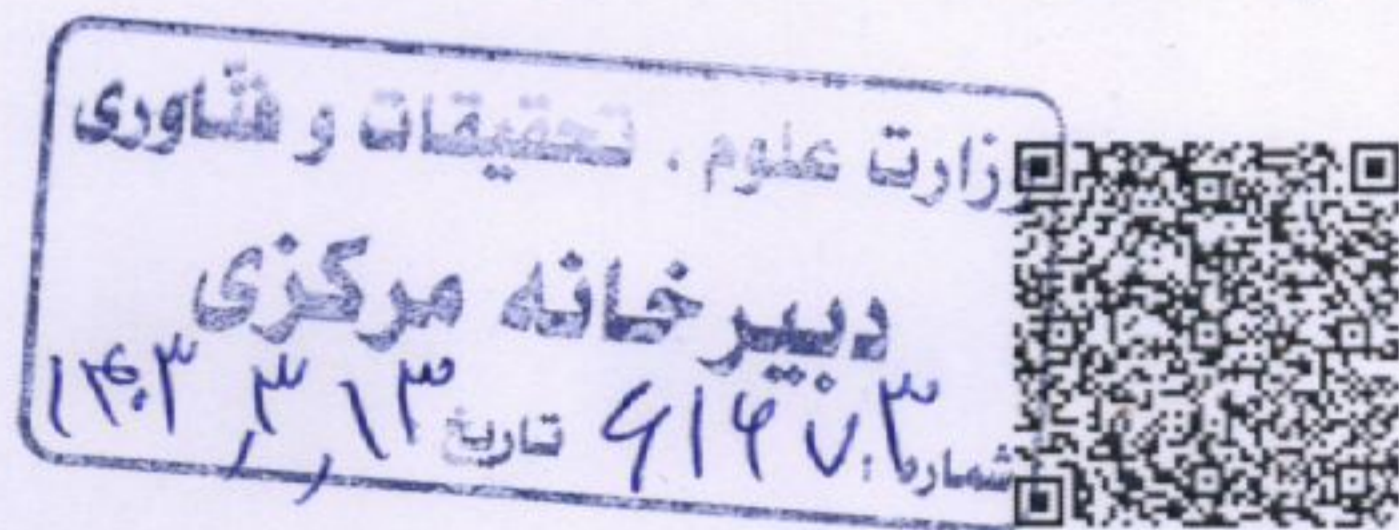 وزارت علوم . تحقیقات و فنّاوری
دبیرخانه مرکزی
شماره: ۶۱۴۷۳ تاریخ ۱۴۰۳/۳/۱۳